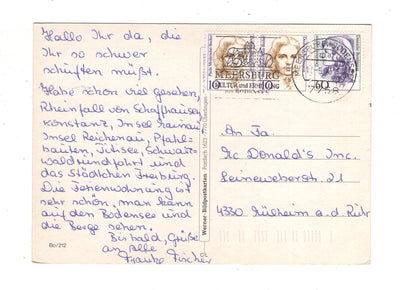 Hallo Ihr da, die
Ihr so schwer
schuften müßt.
Habe schon viel gesehen,
Rheinfall von Schaffhausen,
Konstanz, Insel Mainau,
Insel Reichenau, Pfahl-
bauten, Titisee, Schwarz-
waldrundfahrt und
das Städtchen Freiburg.
Die Ferienwohnung ist
sehr schön, man kann
auf den Bodensee und
die Berge sehen.
Bis bald, Grüße
an alle
Frauke Fischer
Bo/212
Werner-Bildpostkarten
Postfach 1623
10
10
60
MEERSBURG
KULTUR und ERHOLUNG
An Fa.
Mc Donald's Inc.
Leineweberstr. 21
4330 Mülheim a.d. Ruhr